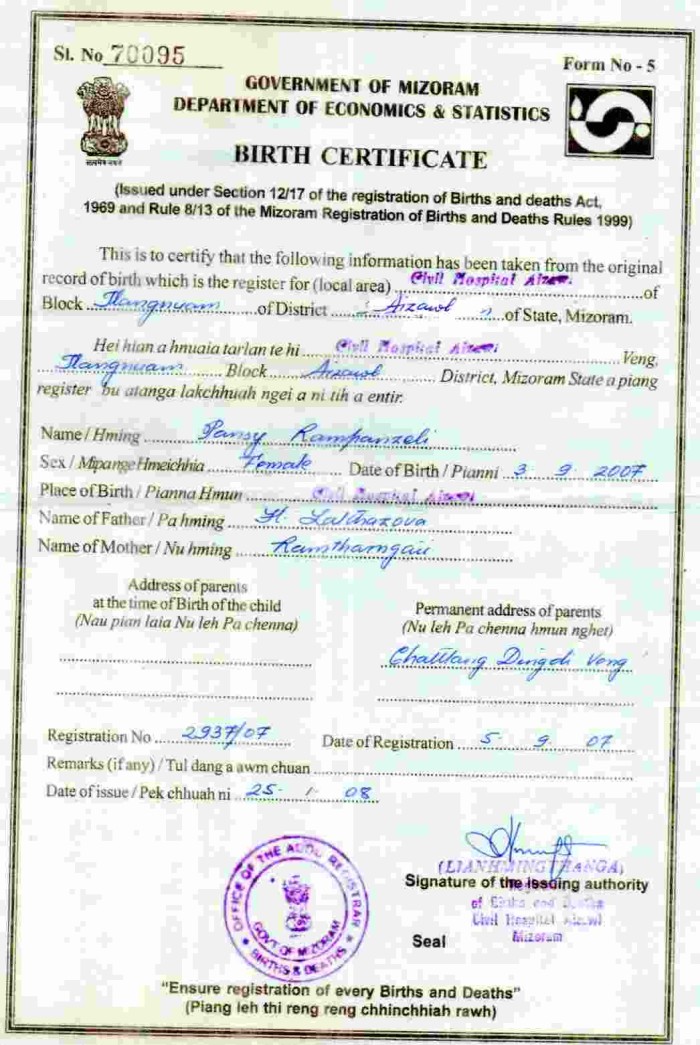 Sl. No 70095
Form No - 5
GOVERNMENT OF MIZORAM
DEPARTMENT OF ECONOMICS & STATISTICS
सत्यमेव जयते
BIRTH CERTIFICATE
(Issued under Section 12/17 of the registration of Births and deaths Act,
1969 and Rule 8/13 of the Mizoram Registration of Births and Deaths Rules 1999)
This is to certify that the following information has been taken from the original
record of birth which is the register for (local area) Civil Hospital Aizawl of
Block Tlangnuam of District Aizawl of State, Mizoram.
Hei hian a hnuaia tarlan te hi Civil Hospital Aizawl Veng,
Tlangnuam Block Aizawl District, Mizoram State a piang
register bu atanga lakchhuah ngei a ni tih a entir.
Name / Hming Pansy Rampanzeli
Sex / Mipange Hmeichhia Female Date of Birth / Pianni 3 9 2007
Place of Birth / Pianna Hmun Civil Hospital Aizawl
Name of Father / Pa hming H. Lalthazova
Name of Mother / Nu hming Ramthamgaii
Address of parents
at the time of Birth of the child
(Nau pian laia Nu leh Pa chenna)
Permanent address of parents
(Nu leh Pa chenna hmun nghet)
Chaltlang Dingdi Veng
Registration No 2937/07 Date of Registration 5 9 07
Remarks (if any) / Tul dang a awm chuan
Date of issue / Pek chhuah ni 25 1 08
OFFICE OF THE ADDL REGISTRAR
GOVT OF MIZORAM
BIRTHS & DEATHS
(LIANHMINGTHANGA)
Signature of the issuing authority
of Births and Deaths
Civil Hospital Aizawl
Mizoram
Seal
"Ensure registration of every Births and Deaths"
(Piang leh thi reng reng chhinchhiah rawh)